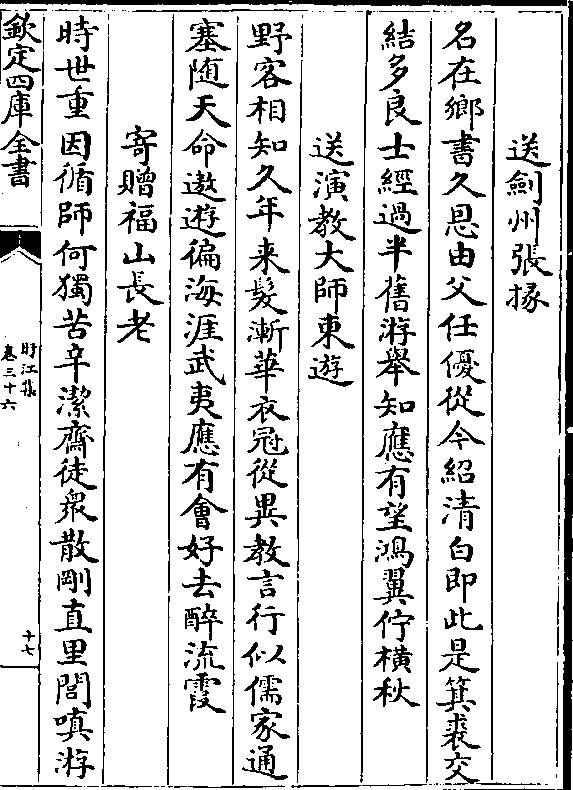 送劍州張掾
名在鄉書久恩由父任優從今紹清白即此是箕裘交
結多良士經過半舊游舉知應有望鴻翼佇橫秋
送演教大師東遊
野客相知久年来髮漸華衣冠從異教言行似儒家通
塞随天命遨遊徧海涯武夷應有會好去醉流霞
寄贈福山長老
時世重因循師何獨苦辛潔齋徒衆散剛直里閭嗔游
欽定四庫全書
旴江集
卷三十六
十七